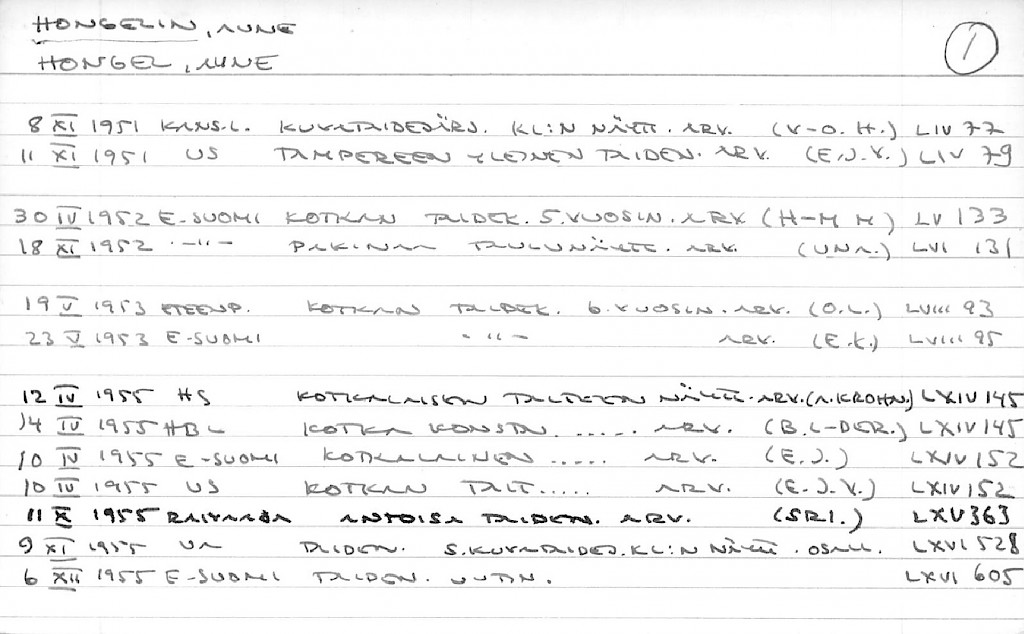 HONGELIN, AUNE
HONGEL, AUNE
1
8 XI 1951 KANS.L. KUVATAIDEJÄRJ. KL:N NÄYTT. ARV. (V-O. H.) LIV 77
11 XI 1951 US TAMPEREEN YLEINEN TAIDEN. ARV. (E.J.V.) LIV 79
30 IV 1952 E-SUOMI KOTKAN TAIDEK. 5.VUOSIN. ARV. (H-M M) LV 133
18 XI 1952 -"- PAKINAA TAULUNÄYTT. ARV. (UNA.) LVI 131
19 V 1953 ETEENP. KOTKAN TAIDEK. 6.VUOSIN. ARV. (O.L.) LVIII 93
23 V 1953 E-SUOMI -"- ARV. (E.K.) LVIII 95
12 IV 1955 HS KOTKALAISTEN TAIT. NÄYTT. ARV. (A.KROHN) LXIV 145
14 IV 1955 HBL KOTKA KONSTN. ..... ARV. (B.L-DER.) LXIV 145
10 IV 1955 E-SUOMI KOTKALAINEN ..... ARV. (E.J.) LXIV 152
10 IV 1955 US KOTKAN TAIT..... ARV. (E.J.V.) LXIV 152
11 X 1955 RAIVAAJA ANTOISA TAIDEN. ARV. (SRI.) LXV 363
9 XI 1955 UA TAIDEN. S.KUVATAIDEJ.KL:N NÄYTT. OSALL. LXVI 528
6 XII 1955 E-SUOMI TAIDEN. UUTIN. LXVI 605